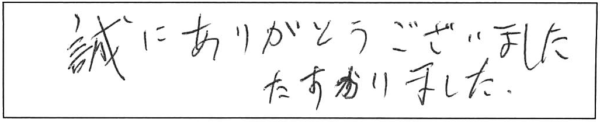 誠にありがとうございました
たすかりました.